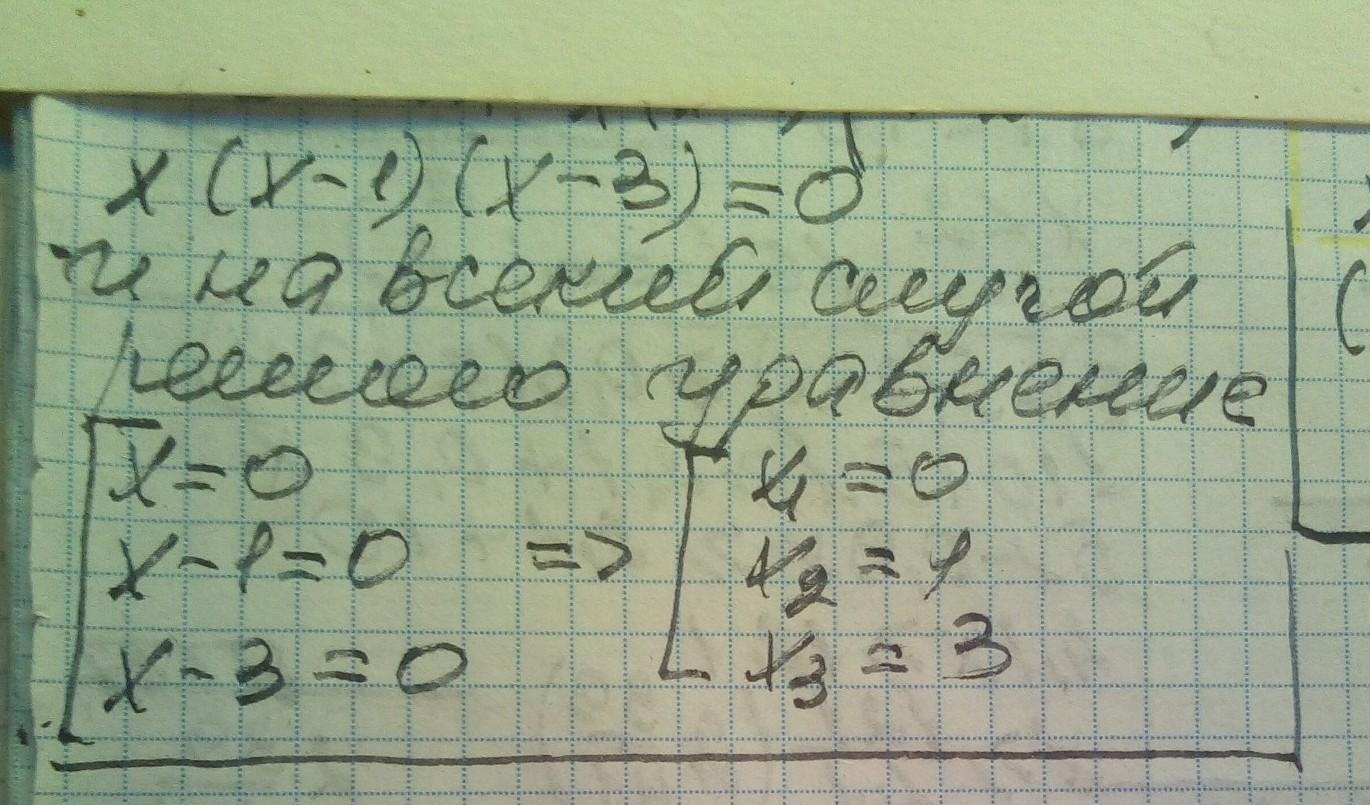 x(x-1)(x-3)=0
и на всекий случой
решаю уравнение
x=0 x₁=0
x-1=0 => x₂=1
x-3=0 x₃=3